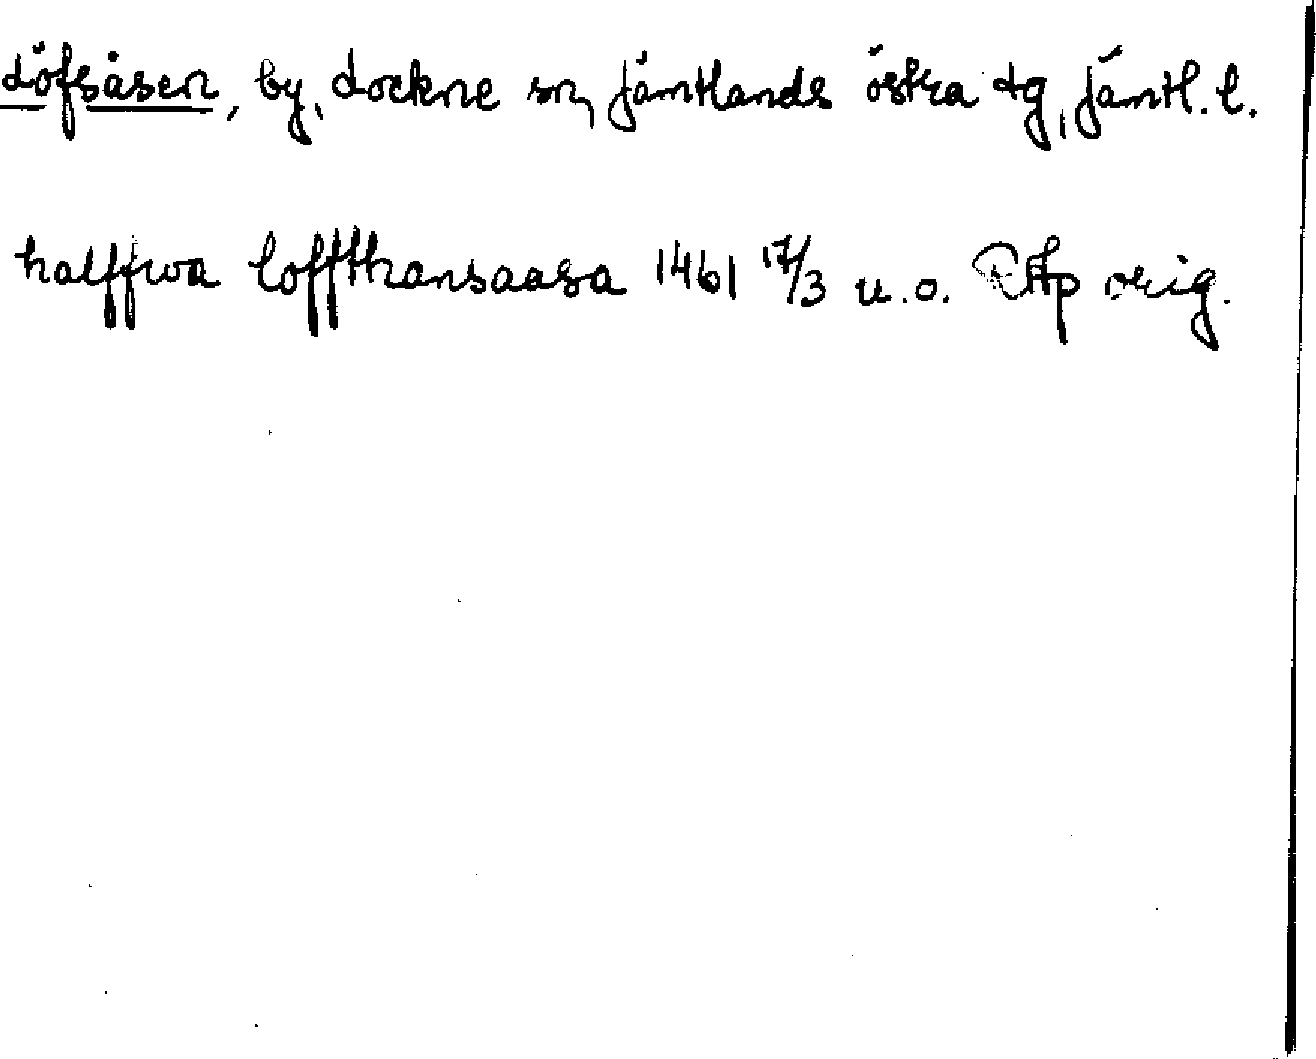 Löfsåsen, by, Lockne sn, Jämtlands östra dg, Jämtl. l.
halffwa loffthansaasa 1461 17/3 u.o. RAp orig.